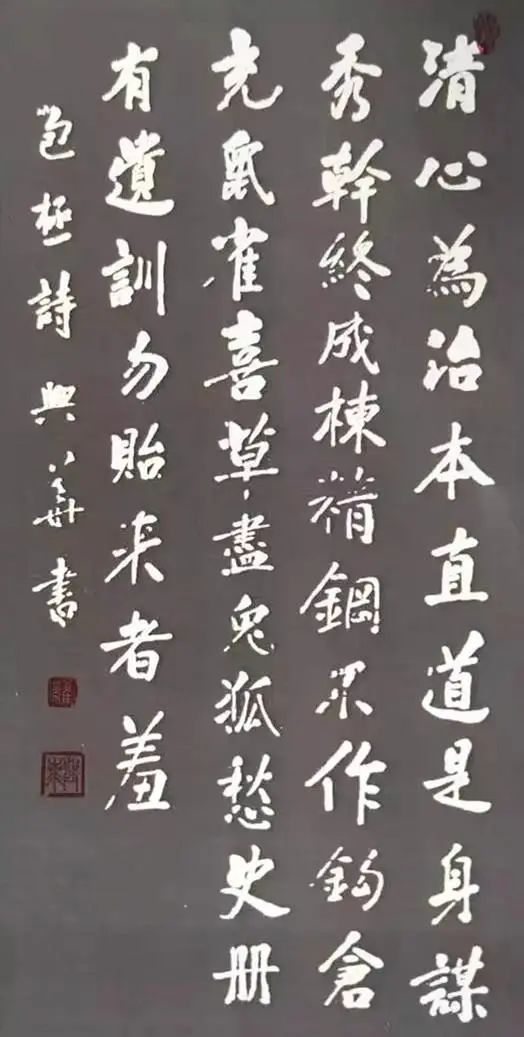 清心為治本直道是身謀
秀幹終成棟精鋼不作鈎倉
充鼠雀喜草盡兔狐愁史册
有遺訓勿貽来者羞
包拯詩興華書